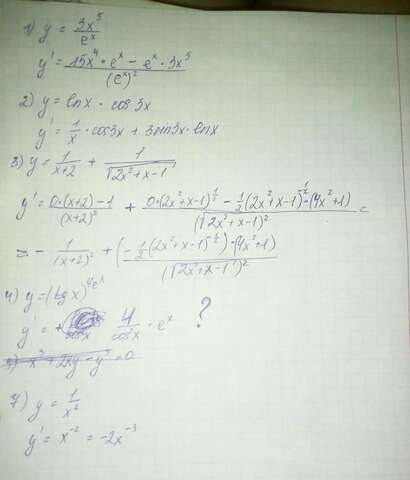 1) y = 3x⁵/eˣ
y' = (15x⁴ • eˣ - eˣ • 3x⁵)/(eˣ)²
2) y = lnx • cos3x
y' = 1/x • cos3x + 3sin3x • lnx
3) y = 1/(x+2) + 1/√(2x²+x-1)
y' = (0•(x+2)-1)/(x+2)² + (0•(2x²+x-1)^(1/2) - 1/2(2x²+x-1)^(-1/2)•(4x²+1))/(√(2x²+x-1))² =
= - 1/(x+2)² + (-1/2(2x²+x-1)^(-1/2))•(4x²+1)/(√(2x²+x-1))²
4) y = (tg x)^(4eˣ)
y' = 4/cos²x • eˣ ?
5) x³ + 2xy - y³ = 0
7) y = 1/x²
y' = x⁻² = -2x⁻³